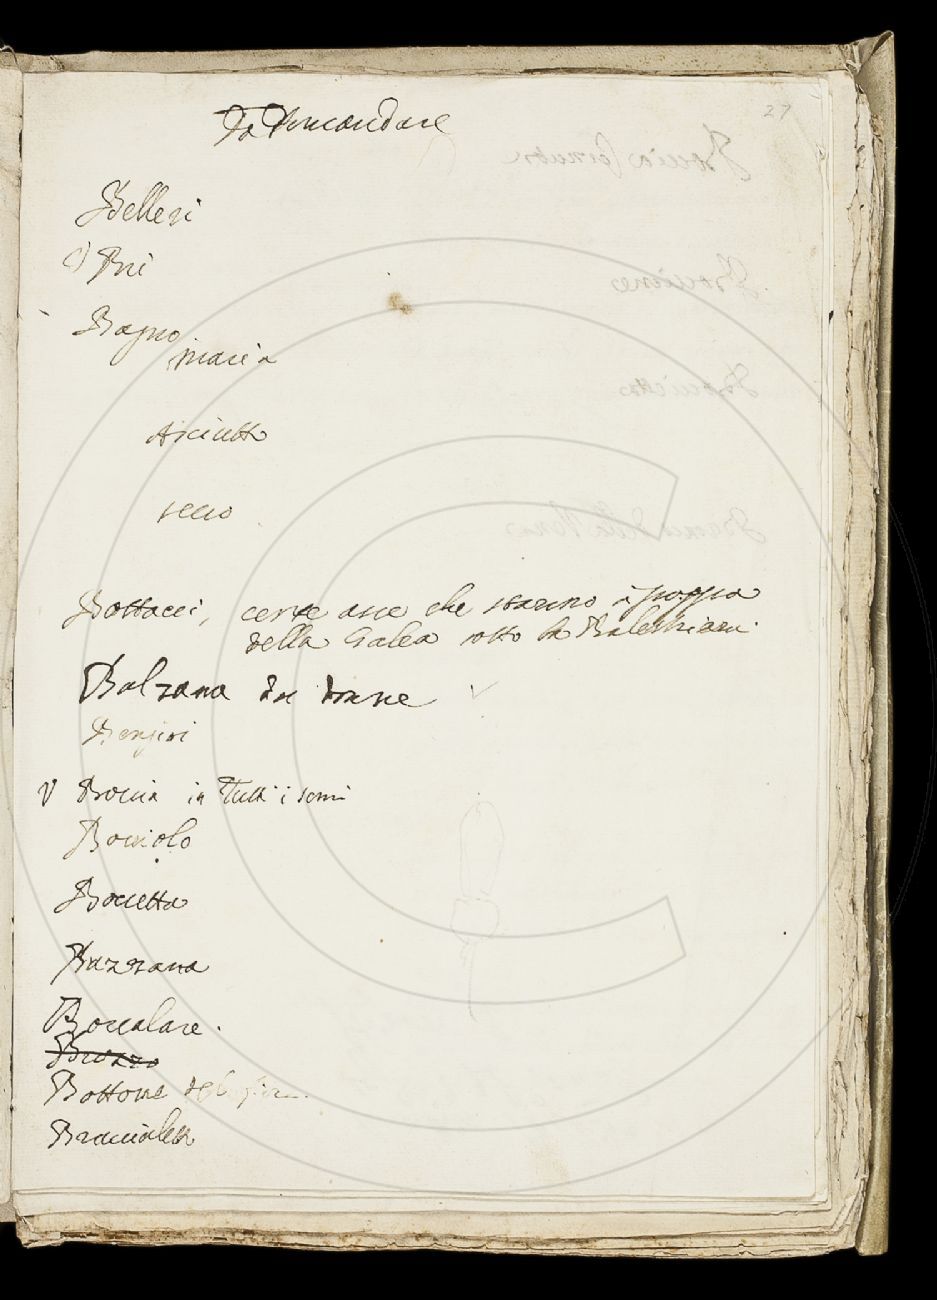 27
Da Domandare
Belleri
Bri
Bagno
maria
Asciutto
secco
Bottacci, certe asse che stanno à poppa
della Galea sotto la Balestriera
Balzana da donne
Broccia in tutti i sensi
Bocciolo
Boccetta
Bazzana
Boccalare.
Bozzo
Bottone del
Braccialetti